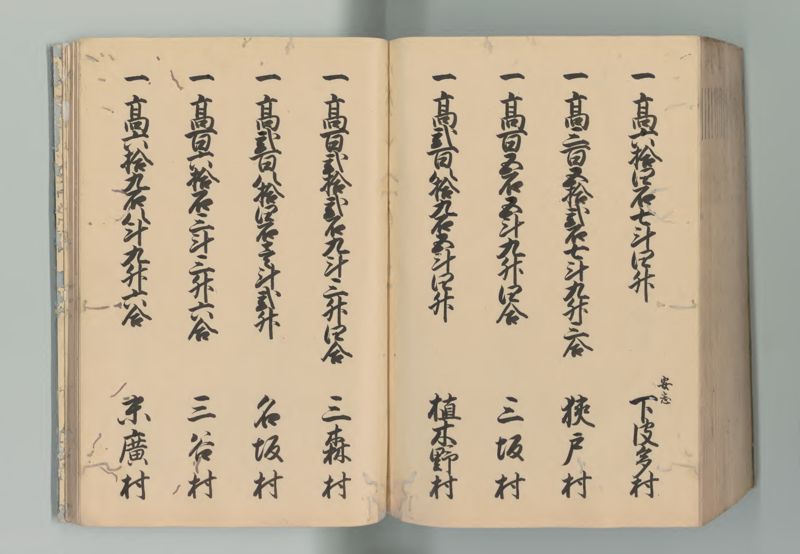 一 高六拾四石七斗四升
安志 下皮多村
一 高三百五拾弐石七斗九升三合
狹戸村
一 高百五石五斗九升四合
三坂村
一 高弐百八拾九石五斗四升
植木野村
一 高百弐拾弐石九斗三升四合
三森村
一 高弐百八拾四石壱斗弐升
名坂村
一 高百六拾石三斗三升六合
三谷村
一 高六拾九石八斗九升六合
末廣村